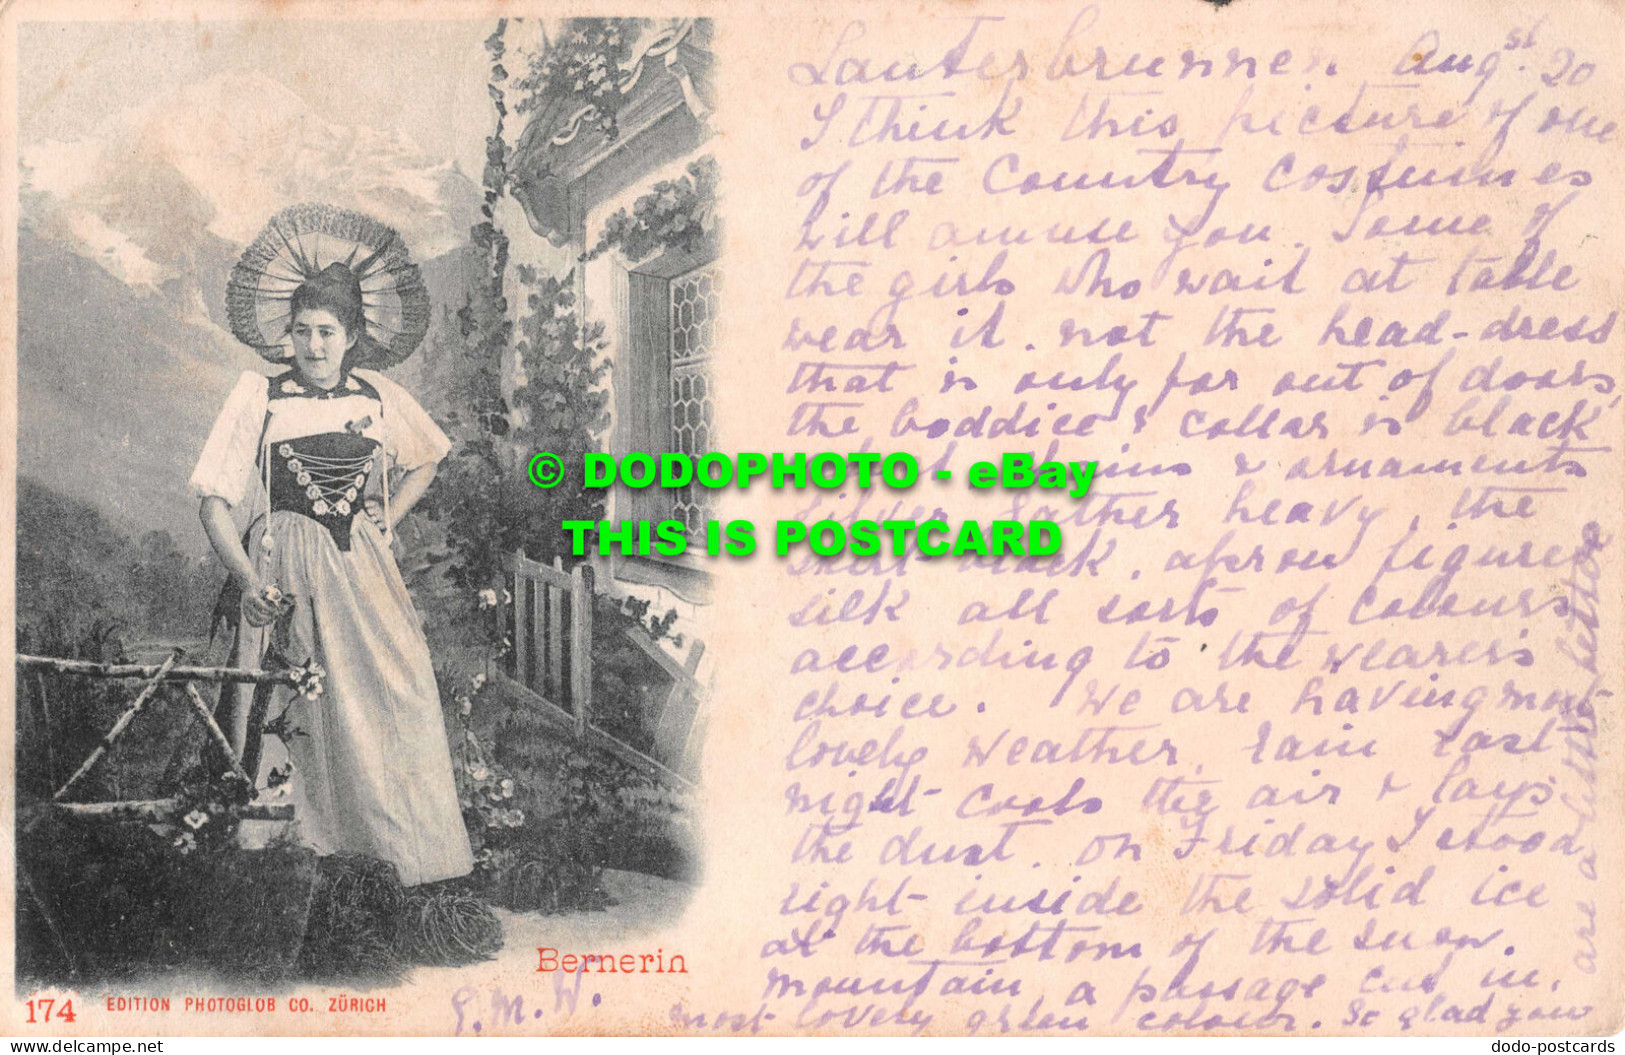 Lauterbrunnen, Augst. 20
I think this picture of one
of the Country costumes
will amuse you. Some of
the girls who wait at table
wear it. not the head-dress
that is only for out of doors,
the boddice & collar is black
& ornaments
silver rather heavy, the
skirt black, apron figured
silk all sorts of colours
according to the wearer's
choice. We are having most
lovely weather, rain last
night cools the air & lays
the dust. On Friday I stood
right inside the solid ice
at the bottom of the snow.
mountain, a passage cut in,
most lovely green colour. So glad you
are a little better
E.M.W.
Bernerin
174 EDITION PHOTOGLOB CO. ZÜRICH
© DODOPHOTO - eBay
THIS IS POSTCARD
www.delcampe.net
dodo-postcards